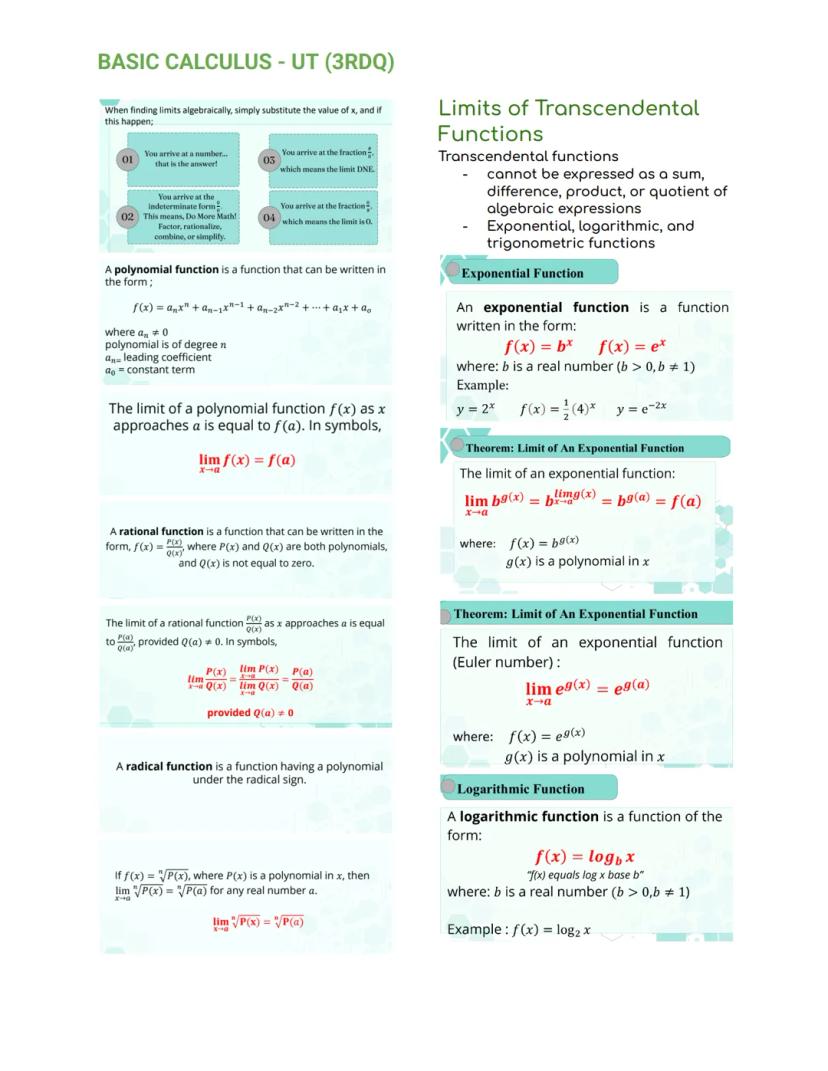 BASIC CALCULUS - UT (3RDQ)
When finding limits algebraically, simply substitute the value of x, and if
this happen;
01
You arrive at a number...
that is the answer!
02
You arrive at the
indeterminate form 0/0.
This means, Do More Math!
Factor, rationalize,
combine, or simplify.
03
You arrive at the fraction
which means the limit DNE.
04
You arrive at the fraction
which means the limit is 0.
A polynomial function is a function that can be written in
the form ;
f(x) = aₙxⁿ + aₙ₋₁xⁿ⁻¹ + aₙ₋₂xⁿ⁻² + ⋯ + a₁x + aₒ
where aₙ ≠ 0
polynomial is of degree n
aₙ₌ leading coefficient
a₀ = constant term
The limit of a polynomial function f(x) as x
approaches a is equal to f(a). In symbols,
lim x→a f(x) = f(a)
A rational function is a function that can be written in the
form, f(x) = P(x)/Q(x), where P(x) and Q(x) are both polynomials,
and Q(x) is not equal to zero.
The limit of a rational function P(x)/Q(x) as x approaches a is equal
to P(a)/Q(a), provided Q(a) ≠ 0. In symbols,
lim x→a P(x)/Q(x) = lim x→a P(x) / lim x→a Q(x) = P(a)/Q(a)
provided Q(a) ≠ 0
A radical function is a function having a polynomial
under the radical sign.
If f(x) = ⁿ√P(x), where P(x) is a polynomial in x, then
lim x→a ⁿ√P(x) = ⁿ√P(a) for any real number a.
lim x→a ⁿ√P(x) = ⁿ√P(a)
Limits of Transcendental
Functions
Transcendental functions
- cannot be expressed as a sum,
difference, product, or quotient of
algebraic expressions
- Exponential, logarithmic, and
trigonometric functions
Exponential Function
An exponential function is a function
written in the form:
f(x) = bˣ f(x) = eˣ
where: b is a real number (b > 0, b ≠ 1)
Example:
y = 2ˣ f(x) = 1/2 (4)ˣ y = e⁻²ˣ
Theorem: Limit of An Exponential Function
The limit of an exponential function:
lim x→a b^g(x) = b^lim x→a g(x) = b^g(a) = f(a)
where: f(x) = b^g(x)
g(x) is a polynomial in x
Theorem: Limit of An Exponential Function
The limit of an exponential function
(Euler number) :
lim x→a e^g(x) = e^g(a)
where: f(x) = e^g(x)
g(x) is a polynomial in x
Logarithmic Function
A logarithmic function is a function of the
form:
f(x) = log_b x
"f(x) equals log x base b"
where: b is a real number (b > 0,b ≠ 1)
Example : f(x) = log₂ x